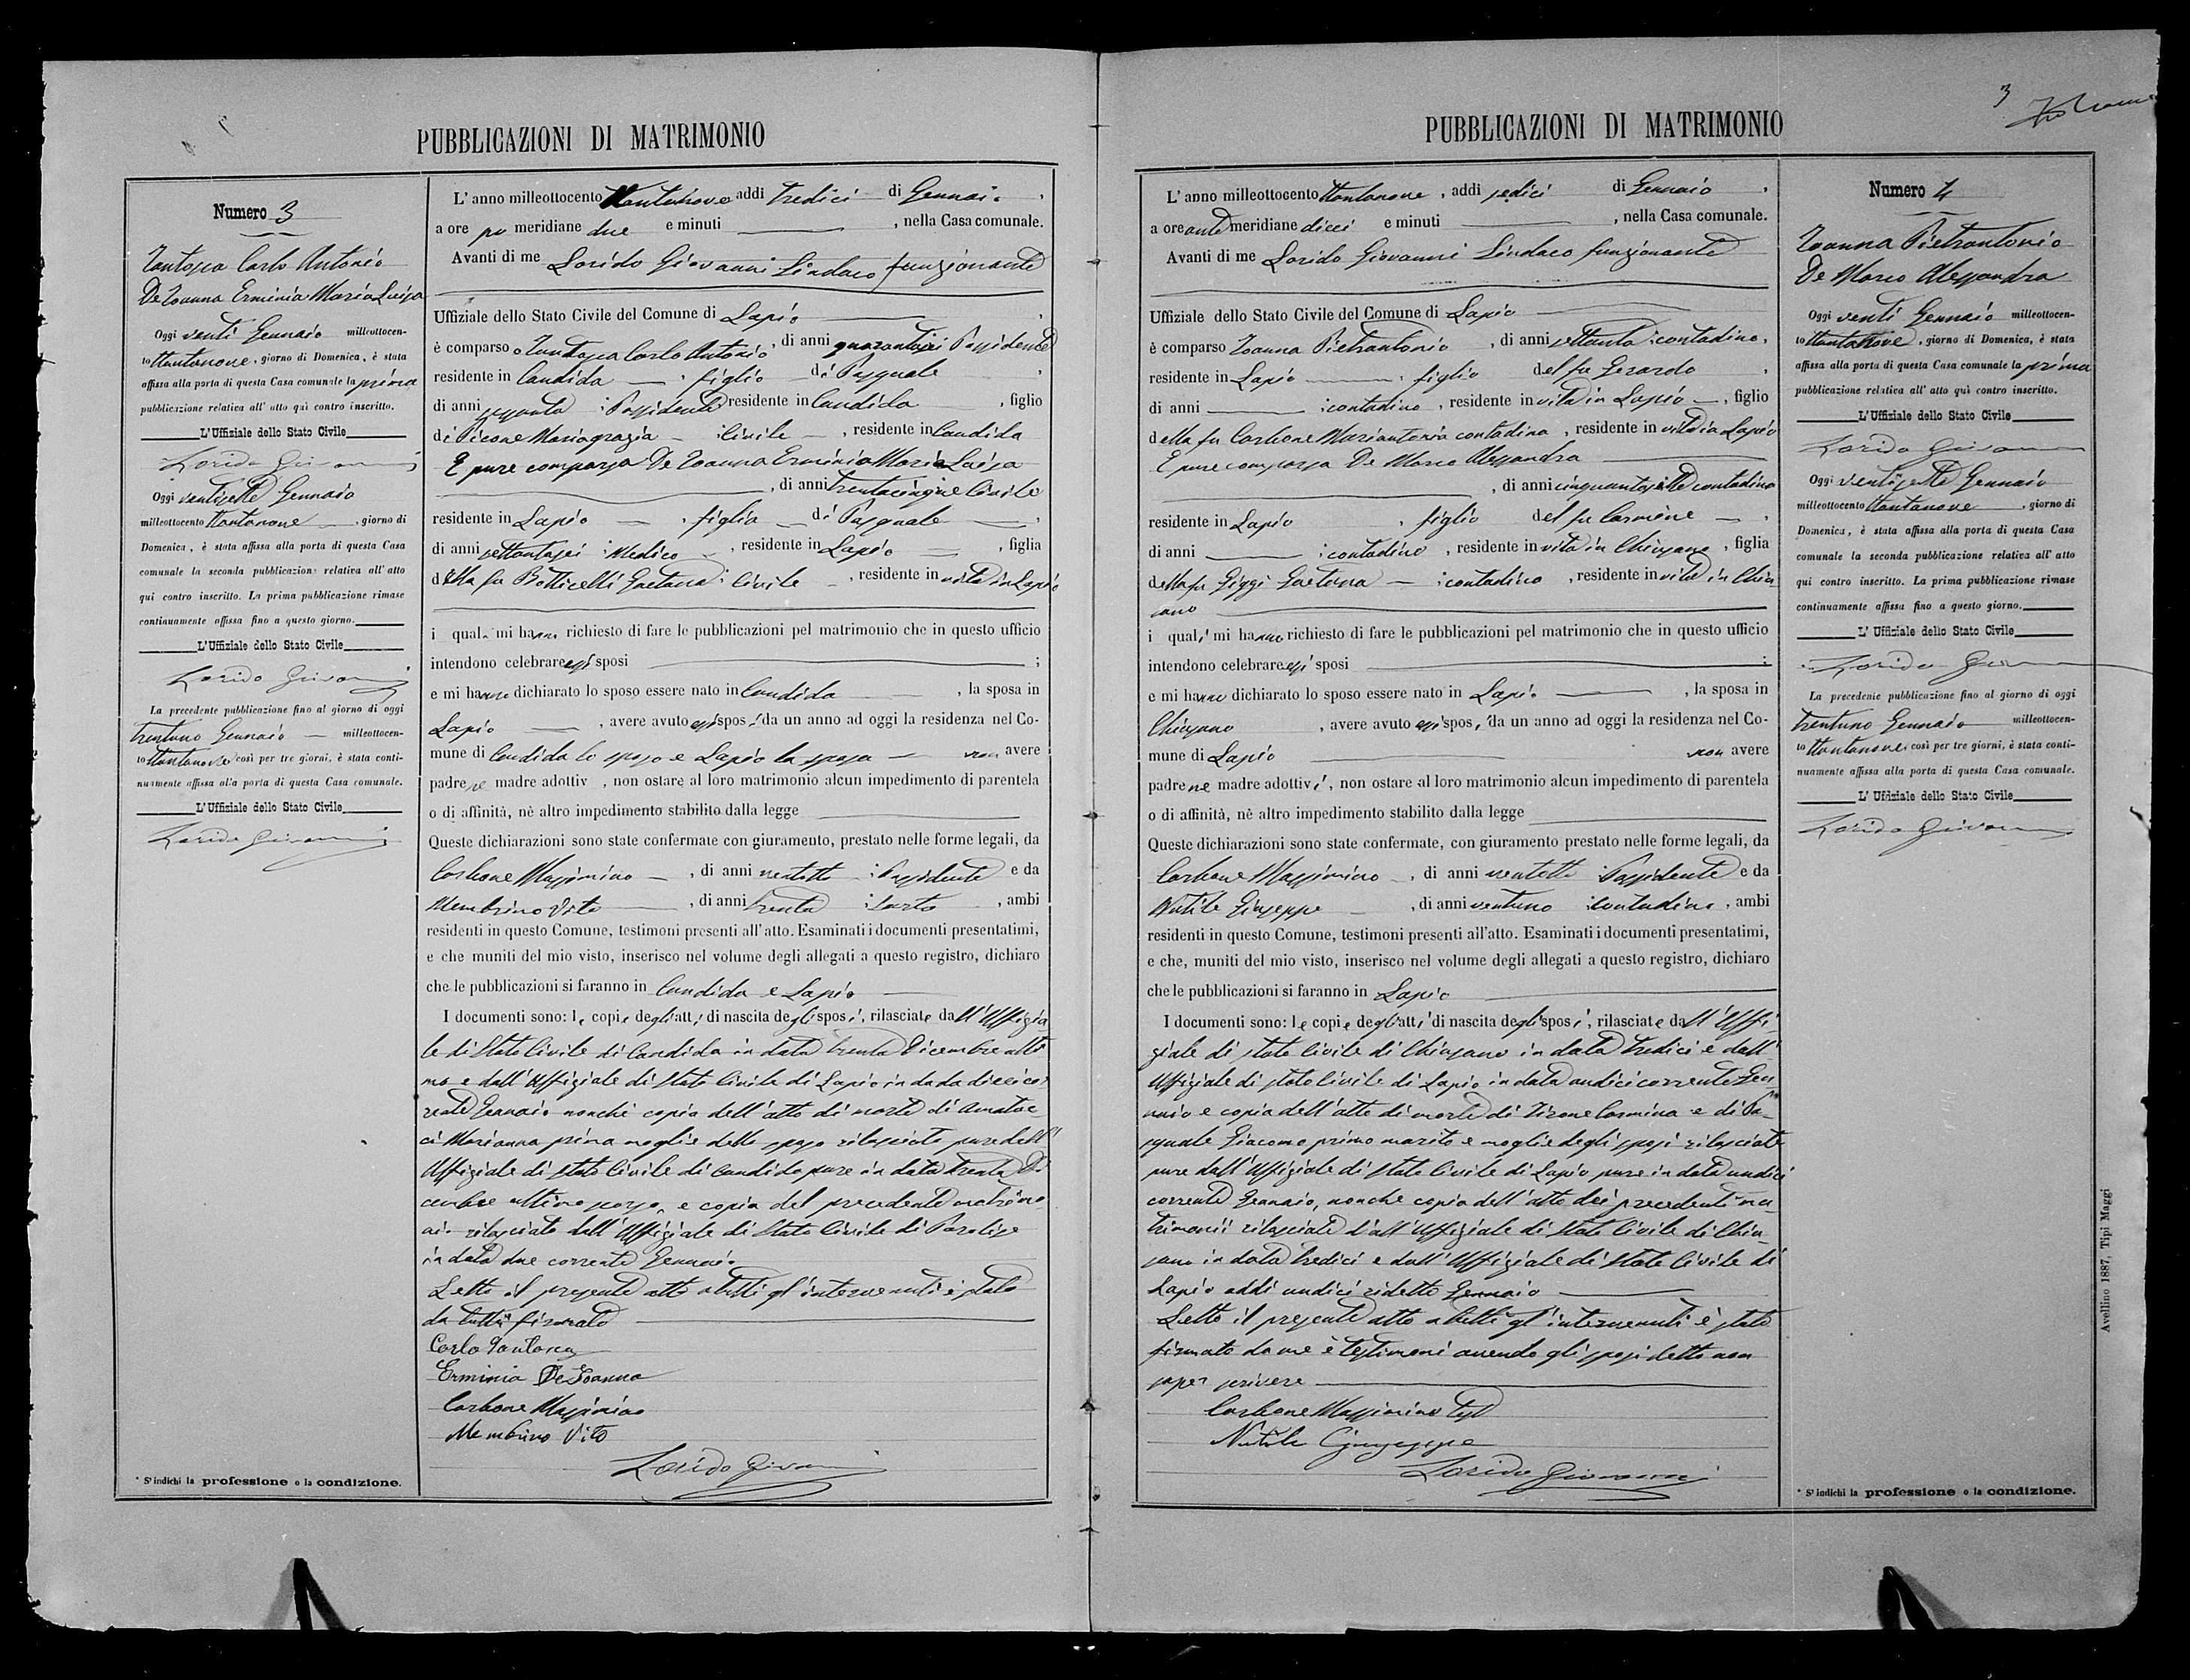 PUBBLICAZIONI DI MATRIMONIO
Numero 3
Carlo Antonio
De Ioanna Erminia Maria Luisa
Oggi venti Gennaio milleottocen-
to ottantanove, giorno di Domenica, è stata
affissa alla porta di questa Casa comunale la prima
pubblicazione relativa all' atto quì contro inscritto.
L'Uffiziale dello Stato Civile
Giovanni
Oggi ventisette Gennaio
milleottocento ottantanove, giorno di
Domenica, è stata affissa alla porta di questa Casa
comunale la seconda pubblicazione relativa all' atto
quì contro inscritto. La prima pubblicazione rimase
continuamente affissa fino a questo giorno.
L'Uffiziale dello Stato Civile
Giovanni
La precedente pubblicazione fino al giorno di oggi
trentuno Gennaio milleottocen-
to ottantanove così per tre giorni, è stata conti-
nuamente affissa alla porta di questa Casa comunale.
L'Uffiziale dello Stato Civile
Giovanni
* S'indichi la professione o la condizione.
L' anno milleottocento ottantanove addì tredici di Gennaio,
a ore po meridiane due e minuti , nella Casa comunale.
Avanti di me Giovanni Sindaco funzionante
Uffiziale dello Stato Civile del Comune di Lapio
è comparso Carlo Antonio, di anni quarantasei Possidente
residente in Candida, figlio di Pasquale
di anni sessanta Possidente residente in Candida, figlio
di Picone Mariagrazia civile, residente in Candida
E pure comparsa De Ioanna Erminia Maria Luisa
, di anni trentacinque Civile
residente in Lapio, figlia di Pasquale,
di anni settantasei Medico, residente in Lapio, figlia
della fu Botticelli Gaetana civile, residente in vita in Lapio
i quali mi hanno richiesto di fare le pubblicazioni pel matrimonio che in questo ufficio
intendono celebrare essi sposi ;
e mi hanno dichiarato lo sposo essere nato in Candida, la sposa in
Lapio, avere avuto essi sposi da un anno ad oggi la residenza nel Co-
mune di Candida lo sposo e Lapio la sposa non avere
padre ne madre adottiv , non ostare al loro matrimonio alcun impedimento di parentela
o di affinità, nè altro impedimento stabilito dalla legge
Queste dichiarazioni sono state confermate con giuramento, prestato nelle forme legali, da
Carbone Massimino, di anni ventotto Possidente e da
Membrino Vito, di anni trenta sarto, ambi
residenti in questo Comune, testimoni presenti all'atto. Esaminati i documenti presentatimi,
e che muniti del mio visto, inserisco nel volume degli allegati a questo registro, dichiaro
che le pubblicazioni si faranno in Candida e Lapio
I documenti sono: le copie degli atti di nascita degli sposi, rilasciate dall'Uffizia
le di Stato Civile di Candida in data trenta Dicembre ulti
mo e dall'Uffiziale di Stato Civile di Lapio in data dieci co
rente Gennaio nonchè copia dell'atto di morte di
Marianna prima moglie dello sposo rilasciato pure dall'
Uffiziale di stato Civile di Candida pure in data trenta Di
cembre ultimo scorso, e copia del precedente matrimo
nio rilasciato dall'Uffiziale di Stato Civile di Parolise
in data due corrente Gennaio.
Letto il presente atto a tutti gl'intervenuti è stato
da tutti firmato
Carlo
Erminia De Ioanna
Carbone Massimino
Membrino Vito
Giovanni
PUBBLICAZIONI DI MATRIMONIO
3
L' anno milleottocento ottantanove, addì sedici di Gennaio,
a ore anti meridiane dieci e minuti , nella Casa comunale.
Avanti di me Giovanni Sindaco funzionante
Uffiziale dello Stato Civile del Comune di Lapio
è comparso Ioanna Pietrantonio, di anni settanta contadino,
residente in Lapio, figlio del fu Gerardo,
di anni contadino, residente in vita in Lapio, figlio
della fu Carbone Mariantonia contadina, residente in vita in Lapio
E pure comparsa De Marco Alessandra
, di anni cinquantasette contadina
residente in Lapio, figlia del fu Carmine,
di anni contadino, residente in vita in Chiusano, figlia
della fu Gaetana contadina, residente in vita in Chiu
sano
i quali mi hanno richiesto di fare le pubblicazioni pel matrimonio che in questo ufficio
intendono celebrare essi sposi ;
e mi hanno dichiarato lo sposo essere nato in Lapio, la sposa in
Chiusano, avere avuto essi sposi da un anno ad oggi la residenza nel Co-
mune di Lapio non avere
padre ne madre adottivi, non ostare al loro matrimonio alcun impedimento di parentela
o di affinità, nè altro impedimento stabilito dalla legge
Queste dichiarazioni sono state confermate, con giuramento prestato nelle forme legali, da
Carbone Massimino, di anni ventotto Possidente e da
Nutile Giuseppe, di anni ventuno contadino, ambi
residenti in questo Comune, testimoni presenti all'atto. Esaminati i documenti presentatimi,
e che, muniti del mio visto, inserisco nel volume degli allegati a questo registro, dichiaro
che le pubblicazioni si faranno in Lapio
I documenti sono: le copie degli atti di nascita degli sposi, rilasciate dall'Uffi
ziale di stato Civile di Chiusano in data tredici e dall'
Uffiziale di stato Civile di Lapio in data undici corrente Gen
naio e copia dell'atto di morte di Carmina e di Pa
squale Giacomo primo marito e moglie degli sposi rilasciate
pure dall'Uffiziale di Stato Civile di Lapio pure in data undici
corrente Gennaio, nonchè copia dell'atto dei precedenti ma
trimonii rilasciate dall'Uffiziale di Stato Civile di Chiu
sano in data tredici e dall'Uffiziale di Stato Civile di
Lapio addì undici ridetto Gennaio
Letto il presente atto a tutti gl'intervenuti è stato
firmato da me e testimoni avendo gli sposi detto non
saper scrivere
Carbone Massimino
Nutile Giuseppe
Giovanni
Numero 4
Ioanna Pietrantonio
De Marco Alessandra
Oggi venti Gennaio milleottocen-
to ottantanove, giorno di Domenica, è stata
affissa alla porta di questa Casa comunale la prima
pubblicazione relativa all' atto quì contro inscritto.
L'Uffiziale dello Stato Civile
Giovanni
Oggi ventisette Gennaio
milleottocento ottantanove, giorno di
Domenica, è stata affissa alla porta di questa Casa
comunale la seconda pubblicazione relativa all' atto
quì contro inscritto. La prima pubblicazione rimase
continuamente affissa fino a questo giorno.
L' Uffiziale dello Stato Civile
Giovanni
La precedente pubblicazione fino al giorno di oggi
trentuno Gennaio milleottocen-
to ottantanove così per tre giorni, è stata conti-
nuamente affissa alla porta di questa Casa comunale.
L' Uffiziale dello Stato Civile
Giovanni
* S'indichi la professione o la condizione.
Avellino 1887, Tipi Maggi